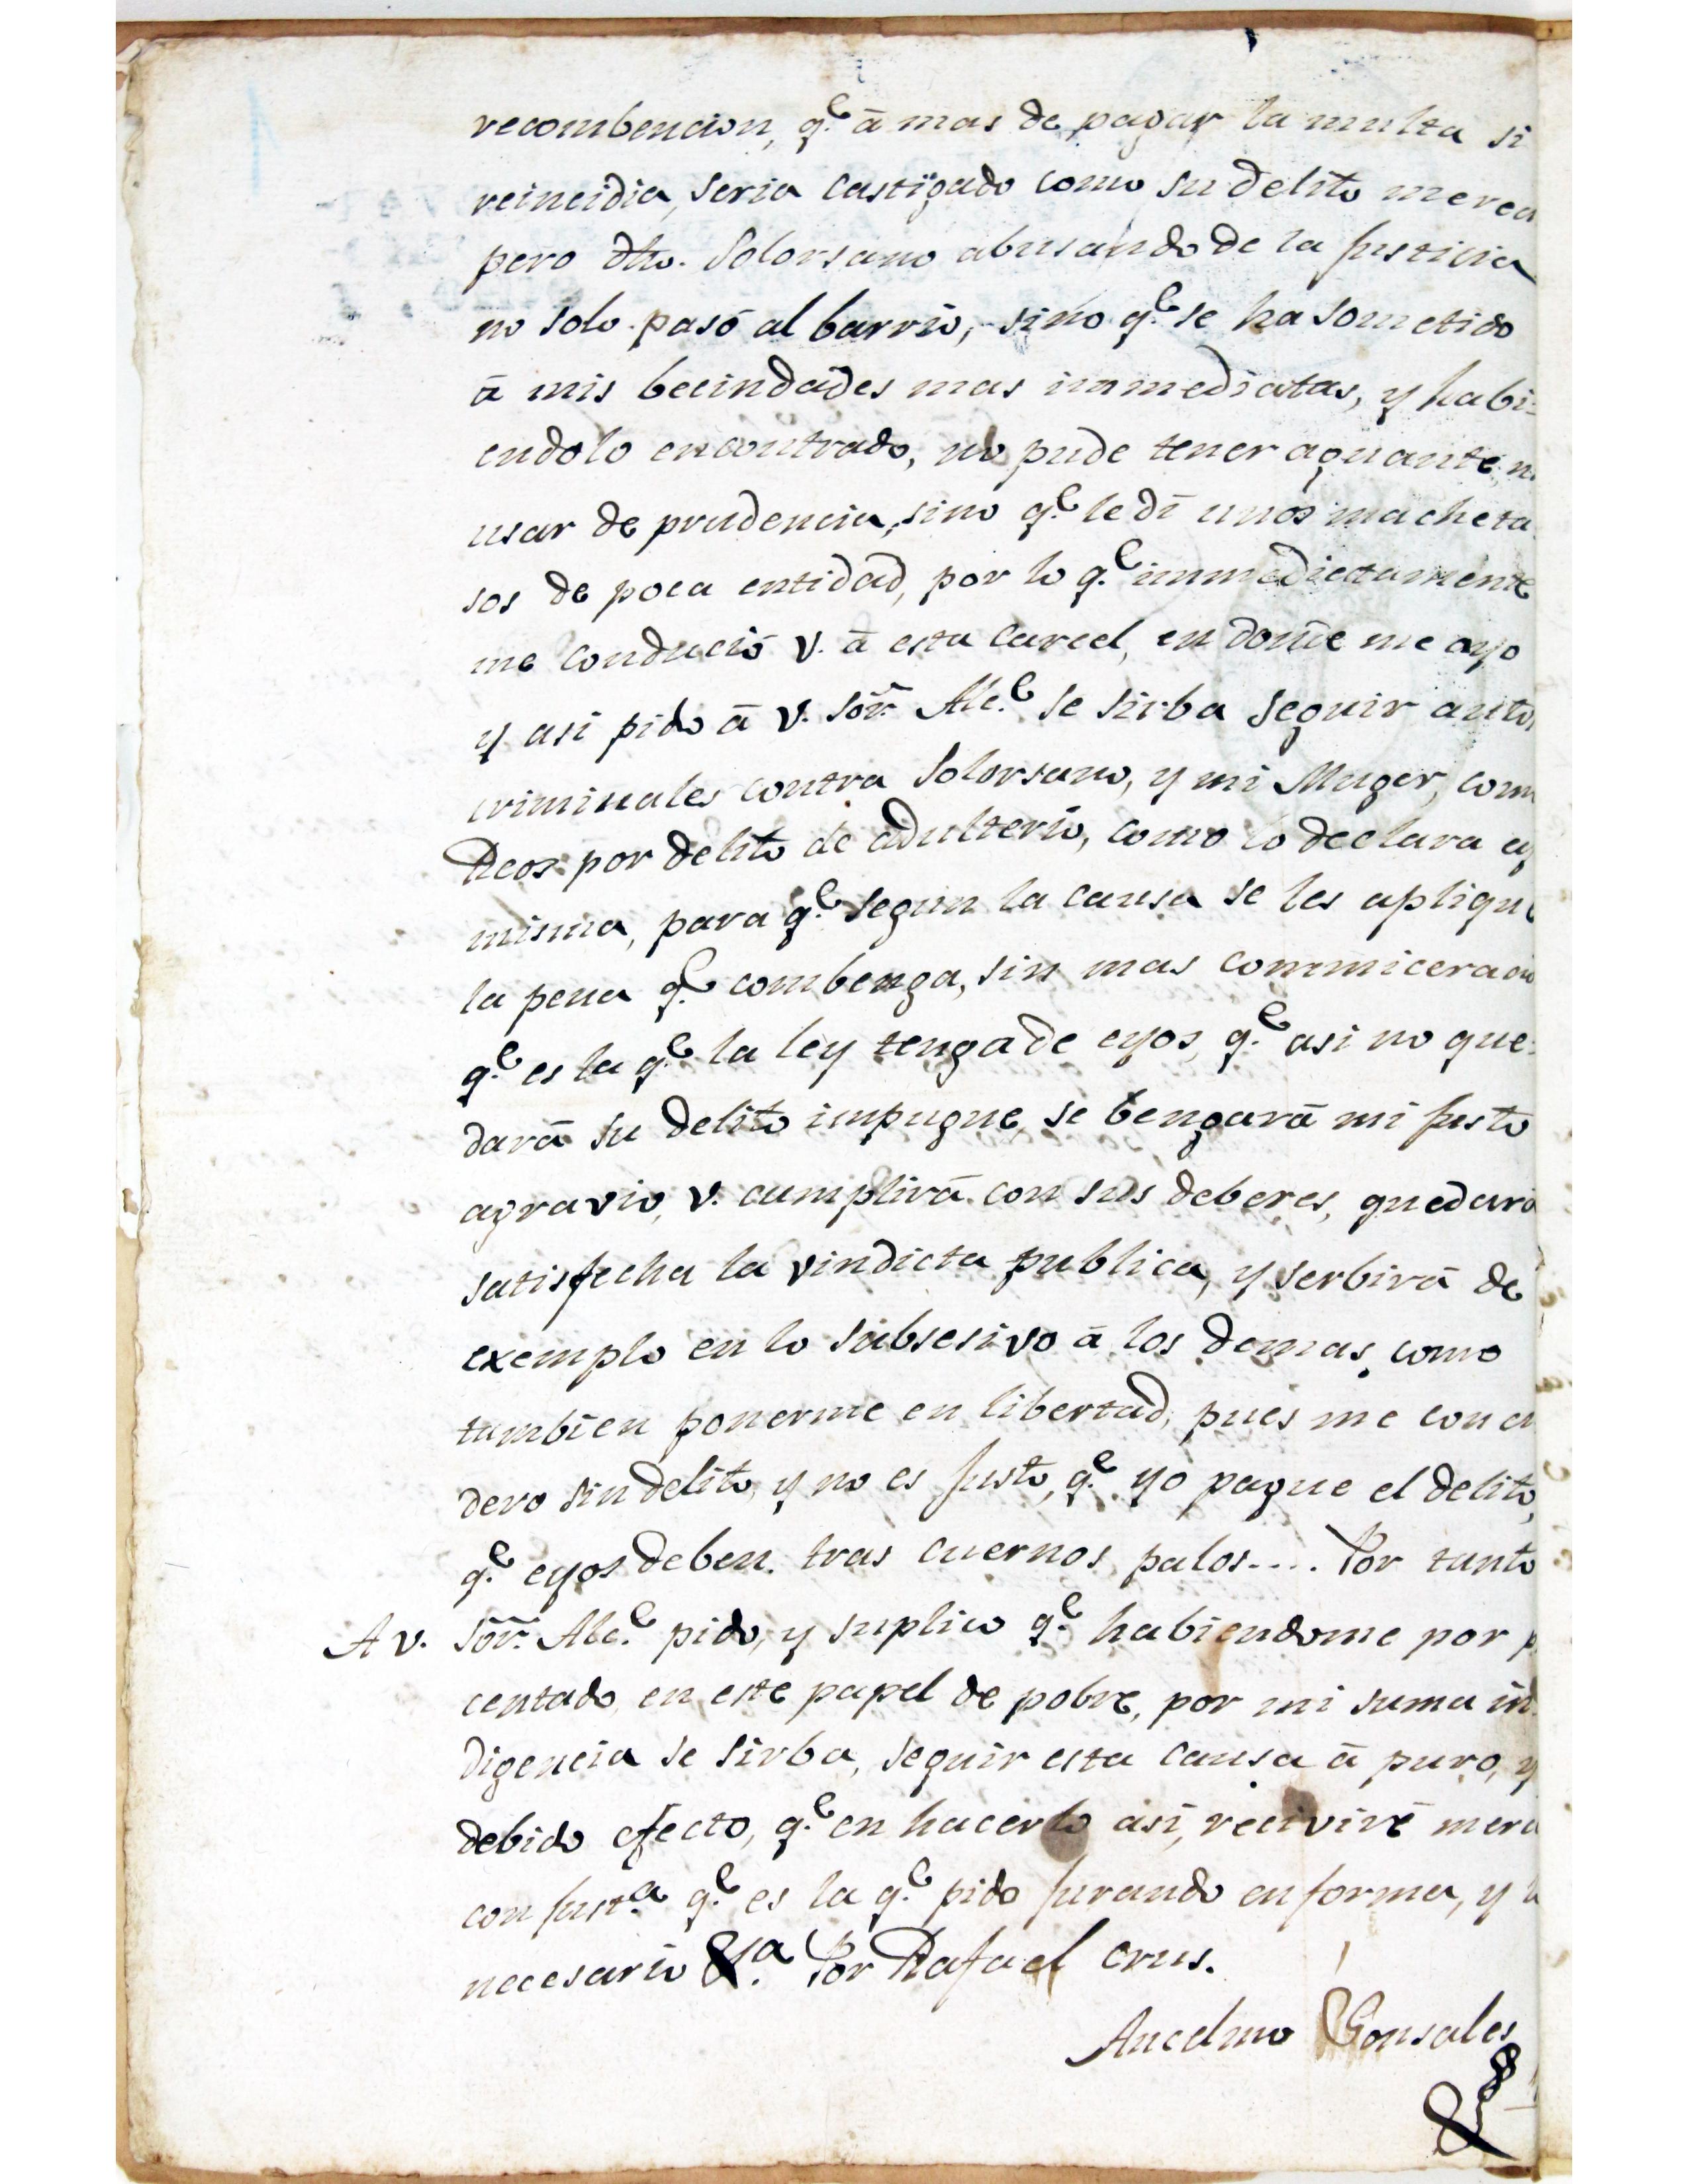 recombencion, q.e á mas de pagar la multa si
reincidia, seria castigado como su delito merec
pero dho. Solorsano abusando de la Justicia
no solo pasó al barrio, sino q.e se ha sometido
á mis becindades mas immediatas, y habi=
endolo encontrado, no pude tener aguante, n
usar de prudencia, sino q.e le dí unos macheta
sos de poca entidad, por lo q.e immediectamente
me condució v. á esta carcel, en donde me ayo
y asi pido á v. Sôr. Alc.e se sirba seguir autos
criminales contra Solorsano, y mi Muger, com
Reos por delito de adulterio, como lo declara ey
misma, para q.e segun la causa se les aplique
la pena q.e combenga, sin mas commiceracio
q.e es la q.e la ley tenga de eyos, q.e asi no que=
dará su delito impugne, se bengará mi justo
agravio, v. cumplirá con sus deberes, quedará
satisfecha la vindicta publica, y serbirá de
exemplo en lo subsesivo á los demas, como
tambien ponerme en libertad, pues me conci
dero sin delito, y no es justo, q.e yo pague el delito,
q.e eyos deben. tras cuernos palos.... Por tanto
A v. Sôr. Alc.e pido, y suplico q.e habiendome por p
centado en este papel de pobre, por mi suma in
digencia se sirba, seguir esta causa á puro, y
debido efecto, q.e en hacerlo asi, reciviré merc
con just.a q.e es la q.e pido jurando en forma, y
necesario &.a Por Rafael Crus.
Ancelmo Gonsales